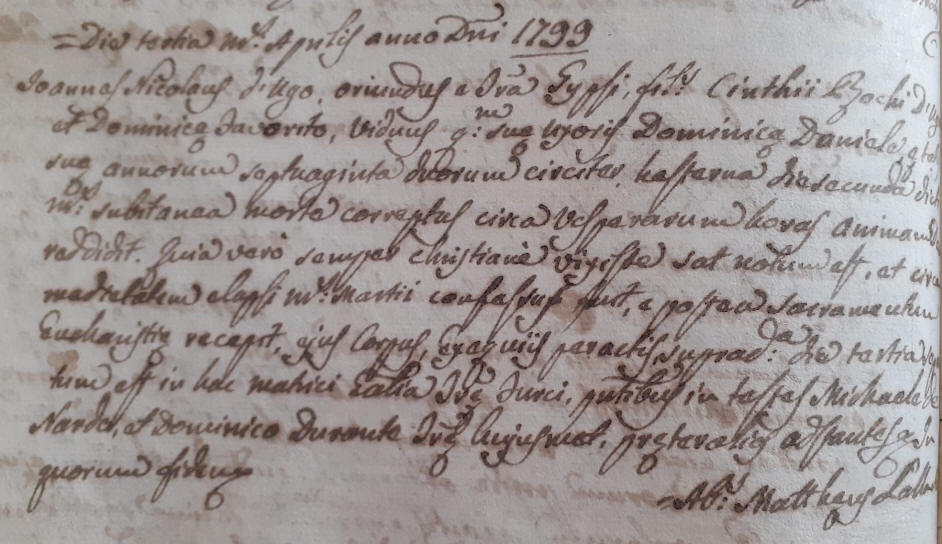 = Die tertia m.s Aprilis anno Dni 1799
Joannes Nicolaus d'Ugo, oriundus e Tra Gypsi, fil.s Cinthii Rochi D'Ug
et Dominicæ Favorito, viduus q.m suæ uxoris Dominicæ Daniele, ætat
suæ annorum septuaginta duorum circiter, hesterna die secunda dicti
m.s subitanea morte correptus circa Vesperarum horas animam D
reddidit. Quia vero semper christiane vixisse sat notum est, et circa
medietatem elapsi m.s Martii confessus fuit, e postea sacramentum
Eucharistiæ recepit, ejus Corpus, exequiis peractis, suprad.a die tertia sep
tum est in hac matrici Ecclia Træ Furci, pntibus in testes Michaele De
Nardo, et Dominico Durante Træ hujusmet, præter alios adstantes, In
quorum fidem
= Ab.s Matthæus